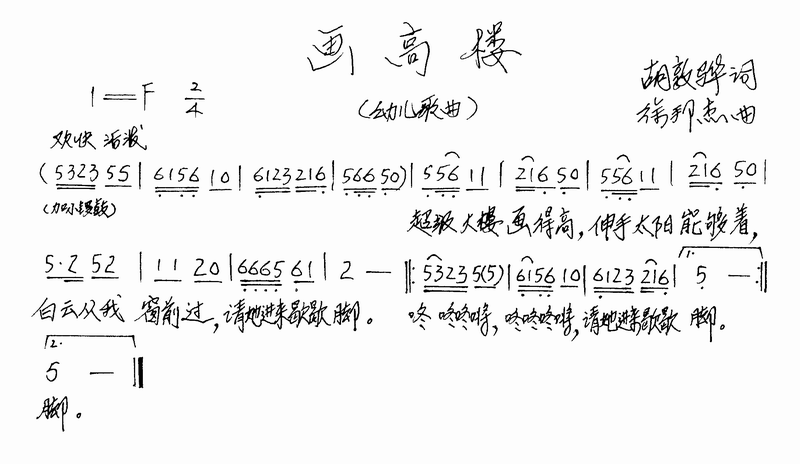 画高楼
1=F 2/4
（幼儿歌曲）
胡敦骅 词
徐邦杰 曲
欢快 活泼
(5323 55 | 6156 10 | 6123 216 | 566 50) | 556 11 | 216 50 | 556 11 | 216 50 |
(加小锣鼓)
超级大楼画得高，伸手太阳能够着，
5·2 52 | 11 20 | 6665 61 | 2 — ‖: 5323 5(5) | 6156 10 | 6123 216 | 1. 5 — :‖
白云从我窗前过，请她进来歇歇脚。 咚咚咚咚，咚咚咚咚，请她进来歇歇脚。
2.
5 — ‖
脚。